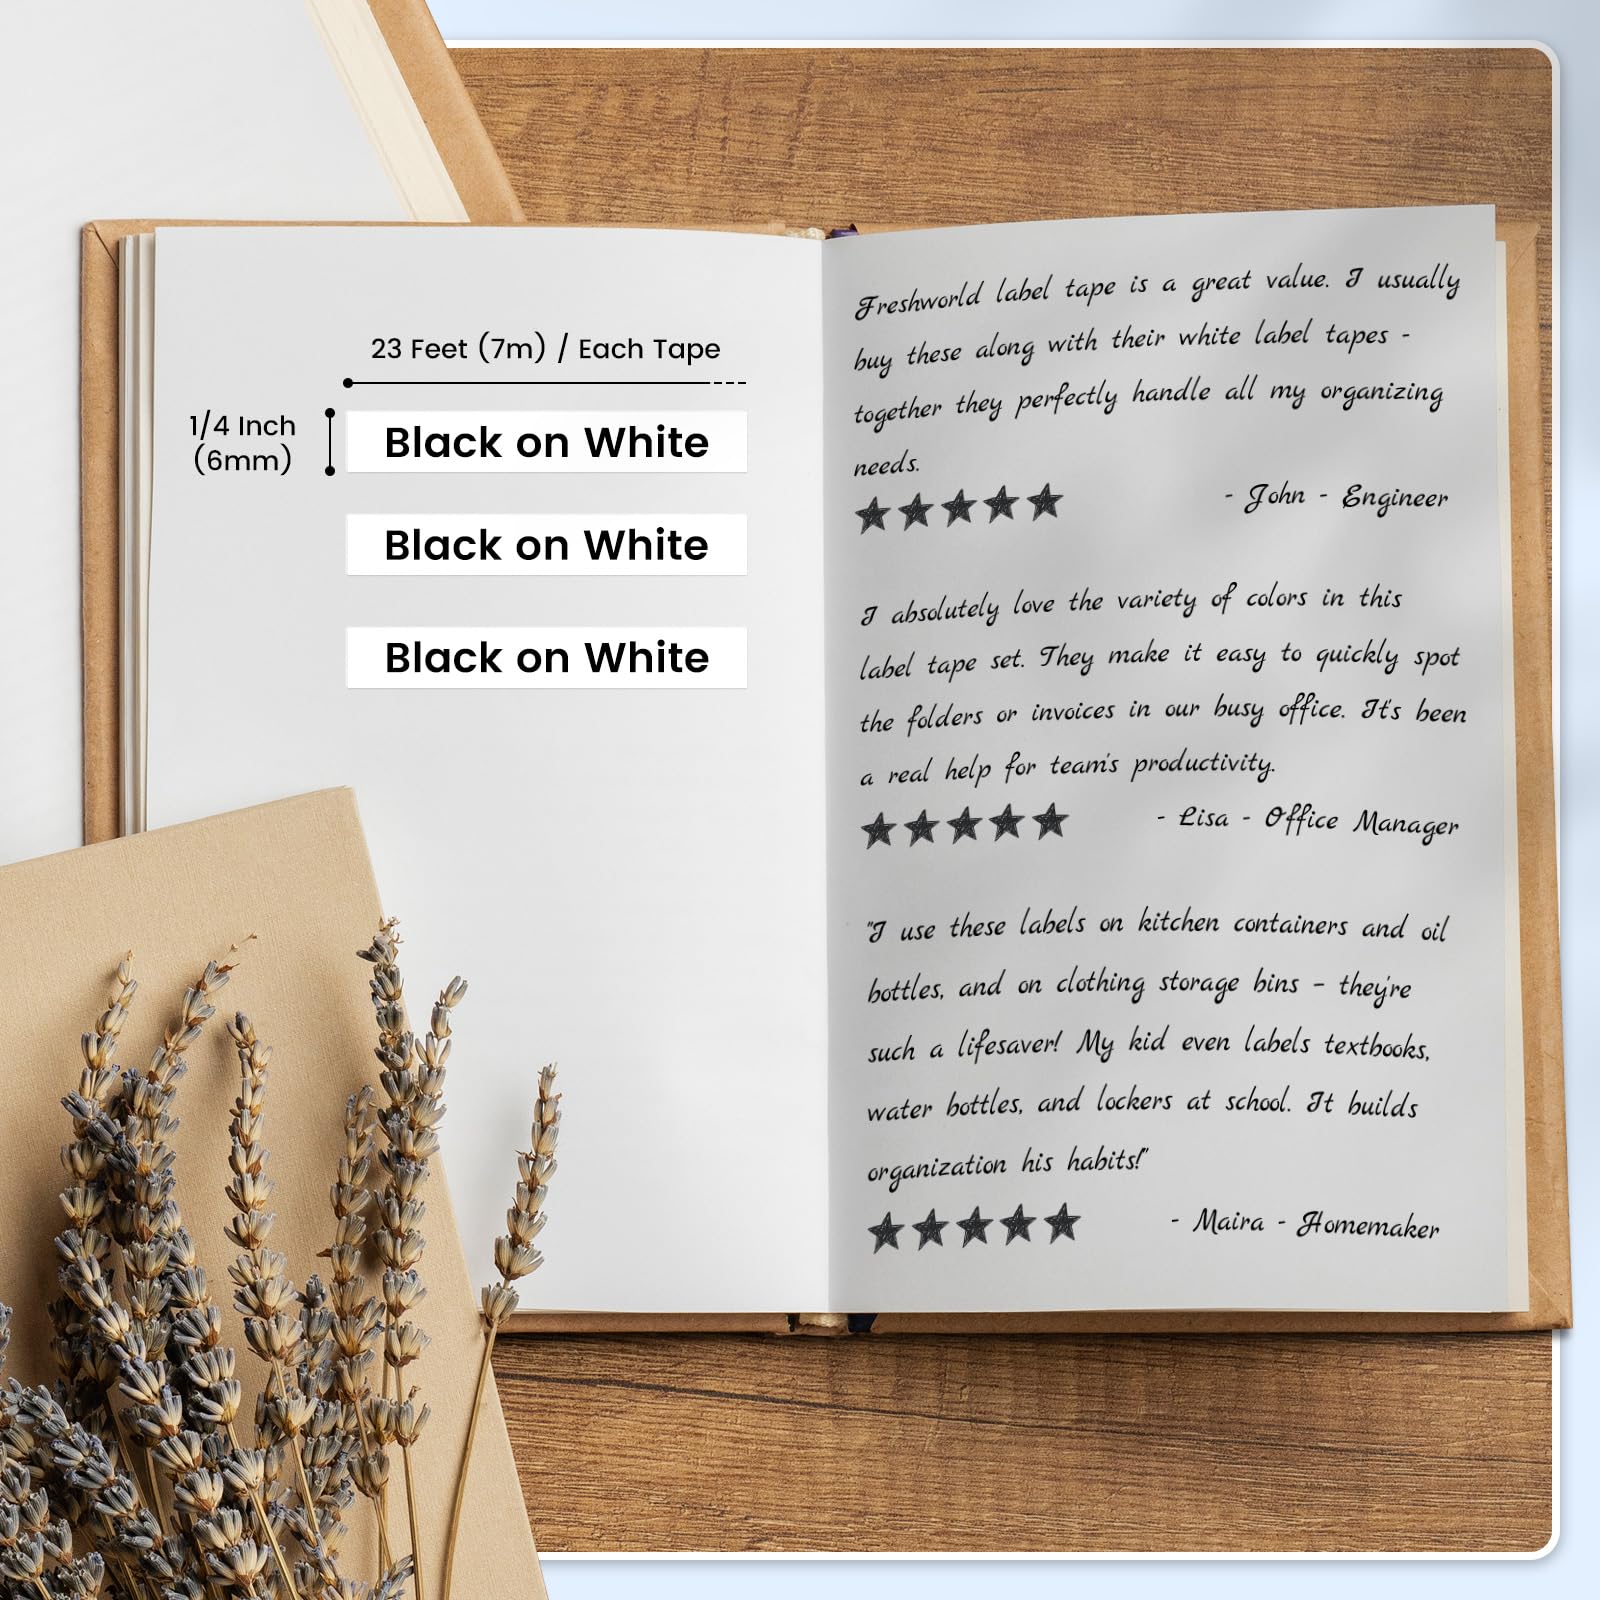 23 Feet (7m) / Each Tape
1/4 Inch
(6mm)
Black on White
Black on White
Black on White
Freshworld label tape is a great value. I usually
buy these along with their white label tapes -
together they perfectly handle all my organizing
needs.
- John - Engineer
I absolutely love the variety of colors in this
label tape set. They make it easy to quickly spot
the folders or invoices in our busy office. It's been
a real help for team's productivity.
- Lisa - Office Manager
"I use these labels on kitchen containers and oil
bottles, and on clothing storage bins - they're
such a lifesaver! My kid even labels textbooks,
water bottles, and lockers at school. It builds
organization his habits!"
- Maira - Homemaker